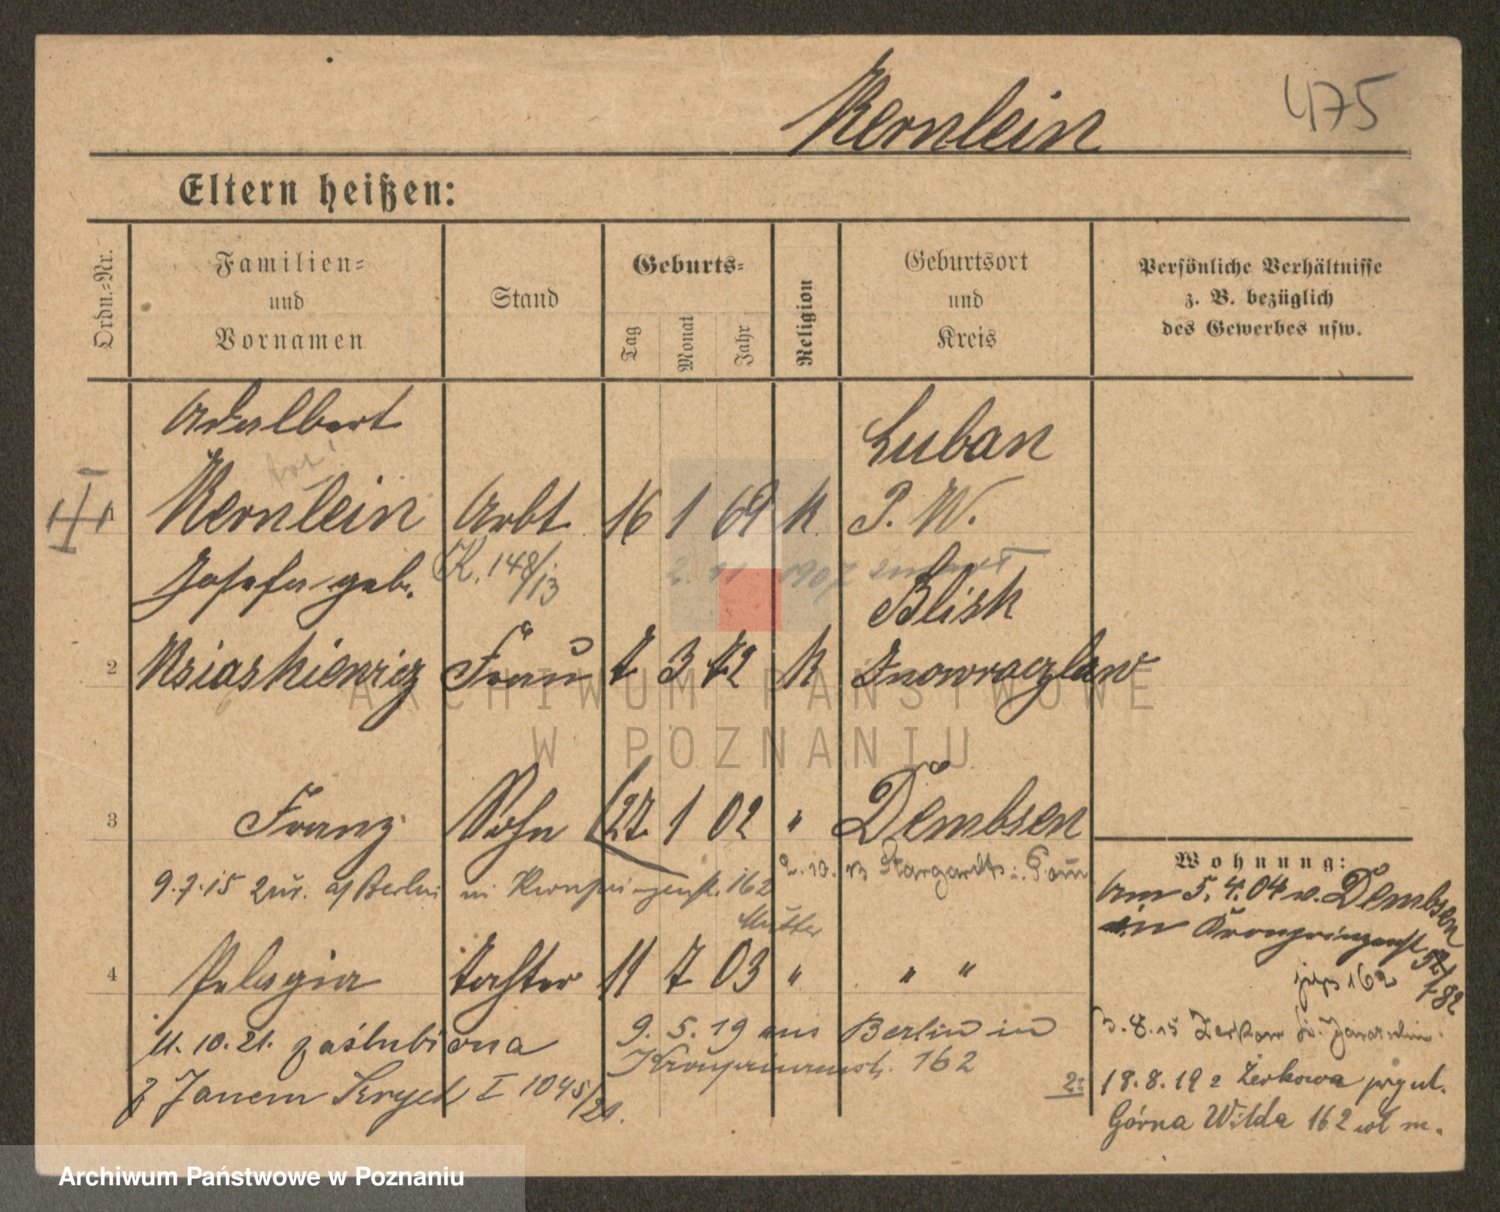 Kernlein
475
Eltern heißen:
Ordn.-Nr.
Familien-
und
Vornamen
Stand
Geburts-
Tag
Monat
Jahr
Religion
Geburtsort
und
Kreis
Persönliche Verhältnisse
z. B. bezüglich
des Gewerbes usw.
Adalbert
Luban
1 Kernlein Arbt. 16 1 69 K. P. W.
Josefa geb. K. 148/13 2. 11 1907
Blisk
2 Ksiaskiewicz Frau 7 3 72 K Inowrazlaw
3 Franz Sohn 27 1 02 " Dembsen
9.7.15 Berlin 162 2.10. Stargardt i. Pom
Mutter
4 Pelagia tochter 11 7 03 " " "
11.10.21. zaślubiona
z Janem I 1045/21.
9. 5. 19 aus Berlin in
Kronprinzenstr. 162
Wohnung:
Am 5.4.04 v. Dembsen
in Kronprinzenst 82
162
3.8.15
2: 18.8.19 z Żerkowa przyul.
Górna Wilda 162 wł m.
ARCHIWUM PAŃSTWOWE
W POZNANIU
Archiwum Państwowe w Poznaniu